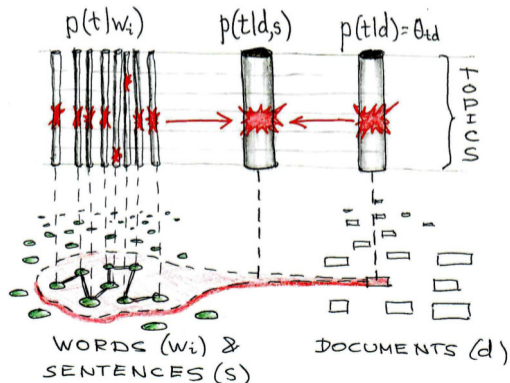 p(t|wᵢ)
p(t|d,s)
p(t|d)=θtd
TOPICS
WORDS (wᵢ) &
SENTENCES (s)
DOCUMENTS (d)